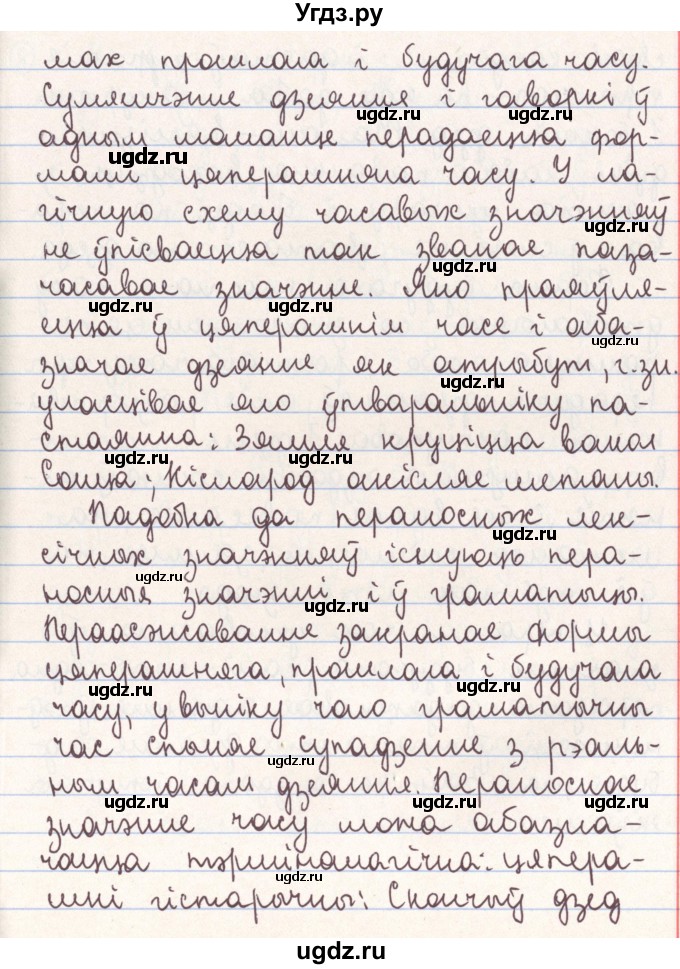 Угдз.ру
мах прошлага і будучага часу.
Сумяшчэнне дзеяння і гаворкі ў
адным моманце перадаецца фор-
мамі цяперашняга часу. У ла-
гічную схему часавых значэнняў
не ўпісваецца так званае паза-
часавае значэнне. Яно праяўля-
ецца ў цяперашнім часе і аба-
значае дзеянне як атрыбут, г.зн.
уласцівае яго ўтваральніку па-
стаянна: Зямля круціцца вакол
Сонца; Кісларод акісляе металы.
Падобна да пераносных лек-
січных значэнняў існуюць пера-
носныя значэнні і ў граматыцы.
Пераасэнсаванне закранае формы
цяперашняга, прошлага і будучага
часу, у выніку чаго граматычны
час спыняе супадзенне з рэаль-
ным часам дзеяння. Пераноснае
значэнне часу можа абазна-
чацца тэрміналагічна: цяпера-
шні гістарычны: Скончыў дзед
ugdz.ru